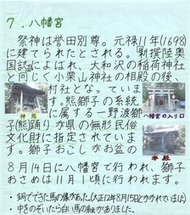 7. 八幡宮
祭神は誉田別尊。元禄11年(1698)
に建てられたとされる。新撰陸奥
国誌によれば、大和沢の稲荷神社
と同じく小栗山神社の相殿の後、
村社となっ
ています。
熊獅子の系統
に属する一野渡獅
子(熊踊り)が県の無形民俗
文化財に指定されていま
す。獅子おこしをお盆の
8月
日に八幡宮で行われ、獅子
おさめは11月1頃に行われます。
八幡宮の入り口
本殿
・銅でできた馬の像があった
・中をのぞいたら白い馬の
がありました。